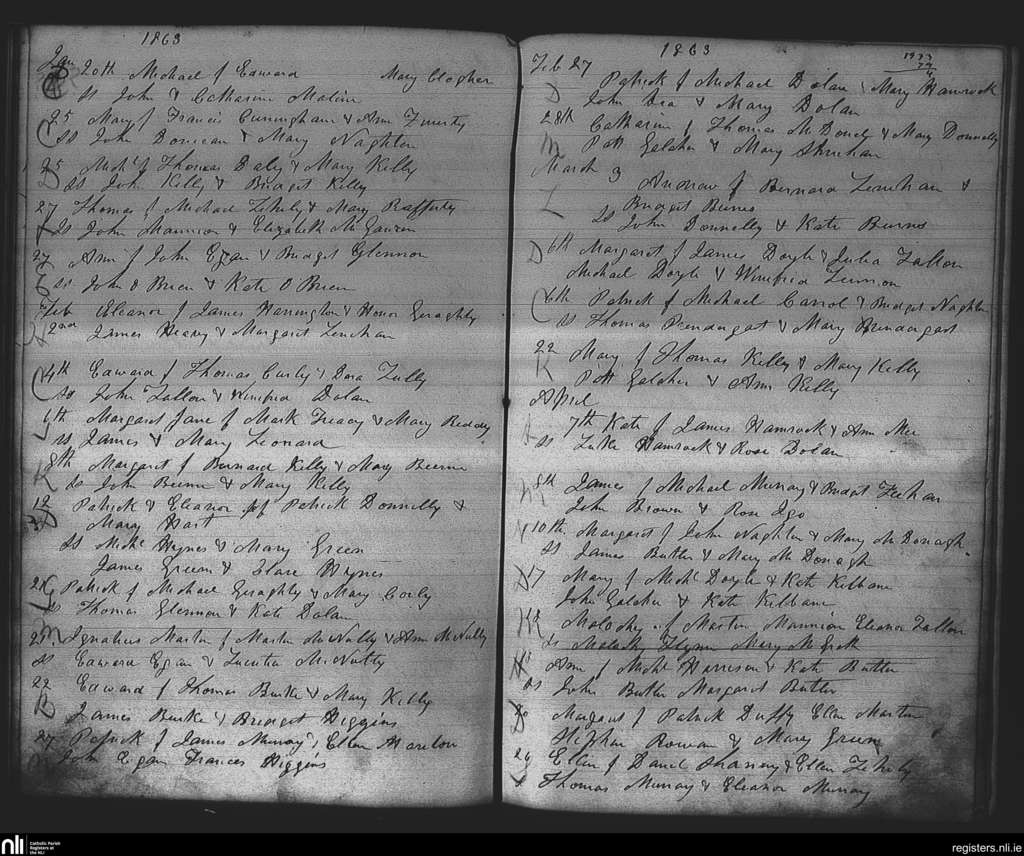 1863
Jan 20th Michael f Edward Mary Clogher
Ss John & Catharine Malin
25 Mary f Francis Cuningham & Ann
C Ss John Donican & Mary Naghten
25 Mich f Thomas Daly & Mary Kelly
D Ss John Kelly & Bridget Kelly
27 Thomas f Michael & Mary Rafferty
Ss John Mannion & Elizabeth McGauran
27 Ann f John Egan & Bridget Glennon
Ss John O Brien & Kate O Brien
Feb Eleanor f James Harrington & Honor Geraghty
2nd James Heavy & Margaret Lenehan
4th Edward f Thomas Curly & Dora Tully
C Ss John Fallon & Winifred Dolan
6th Margaret Jane f Mark Treacy & Mary Reddy
Ss James & Mary Leonard
8th Margaret f Bernard Kelly & Mary Beirne
K Ss John Beirne & Mary Kelly
12 Patrick & Eleanor f Patrick Donnelly &
Mary Hart
Ss Mich Hynes & Mary Green
James Green & Clare Hynes
Patrick f Michael Geraghty & Mary Corly
Ss Thomas Glennon & Kate Dolan
Ignatius Martin f Martin McNulty & Ann McNulty
Ss Edward Egan & Lucretia McNulty
22 Edward f Thomas Burke & Mary Kelly
B James Burke & Bridget Higgins
27 Patrick f James Murray & Ellen Hanlon
John Egan Frances Higgins
1863
Feb 27 Patrick f Michael Dolan & Mary Hamrock
D John Dea & Mary Dolan
28th Catharine f Thomas McDonel & Mary Donnelly
M Patt Gelcher & Mary
March 3 Andrew f Bernard Lenehan &
L Bridget Birnes
Ss John Donnelly & Kate Burns
D 6th Margaret f James Doyle & Julia Fallon
Michael Doyle & Winifred
C 6th Patrick f Michael Carrol & Bridget Naghten
Ss Thomas Prendargast & Mary Prendargast
22 Mary f Thomas Kelly & Mary Kelly
K Patt Gelcher & Ann Kelly
April
7th Kate f James Hamrock & Ann Mee
Ss Luke Hamrock & Rose Dolan
8th James f Michael Murray & Bridget Feehan
John Brown & Rose Igo
10th Margaret f John Naghten & Mary McDonagh
Ss James Butler & Mary McDonagh
D Mary f Mich Doyle & Kate Kilbane
John Gelcher & Kate Kilbane
Malachy f Martin Mannion Eleanor Fallon
Ss Malachy Flynn Mary
Ann f Michl Harrison & Kate Butler
Ss John Butler Margaret Butler
Margaret f Patrick Duffy Ellen Martin
Stephen Rowan & Mary Green
26 Ellen f Daniel & Ellen
Thomas Murray & Eleanor Murray
nli Catholic Parish Registers at the NLI
registers.nli.ie